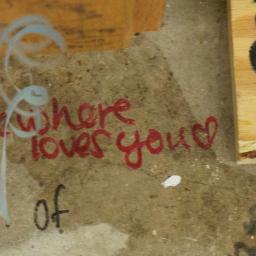 where
loves you♡
of